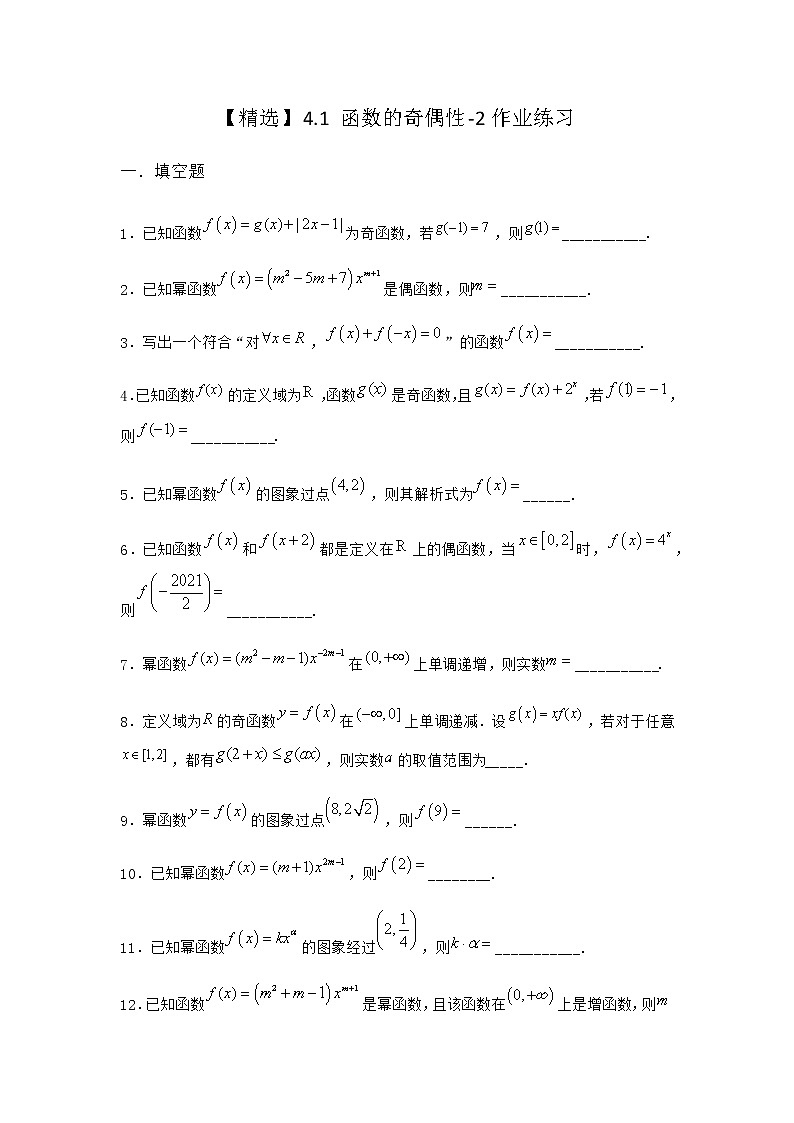 【精选】4.1 函数的奇偶性-2作业练习
一．填空题
1．已知函数f(x)=g(x)+|2x−1|为奇函数，若g(−1)=7，则g(1)=___________.
2．已知幂函数f(x)=(m²−5m+7)x^{m+1}是偶函数，则m=___________.
3．写出一个符合“对∀x∈R，f(x)+f(−x)=0”的函数f(x)=___________.
4.已知函数f(x)的定义域为R,函数g(x)是奇函数,且g(x)=f(x)+2^x,若f(1)=−1,
则f(−1)=___________.
5．已知幂函数f(x)的图象过点(4,2)，则其解析式为f(x)=______.
6．已知函数f(x)和f(x+2)都是定义在R上的偶函数，当x∈[0,2]时，f(x)=4^x，
则f(−2021/2)=___________.
7．幂函数f(x)=(m²−m−1)x^{−2m−1}在(0,+∞)上单调递增，则实数m=___________.
8．定义域为R的奇函数y=f(x)在(−∞,0]上单调递减．设g(x)=xf(x)，若对于任意
x∈[1,2]，都有g(2+x)≤g(ax)，则实数a的取值范围为_____.
9．幂函数y=f(x)的图象过点(8,2√2)，则f(9)=______.
10．已知幂函数f(x)=(m+1)x^{2m−1}，则f(2)=________.
11．已知幂函数f(x)=kx^α的图象经过(2,1/4)，则k·α=___________.
12.已知函数f(x)=(m²+m−1)x^{m+1}是幂函数,且该函数在(0,+∞)上是增函数,则m